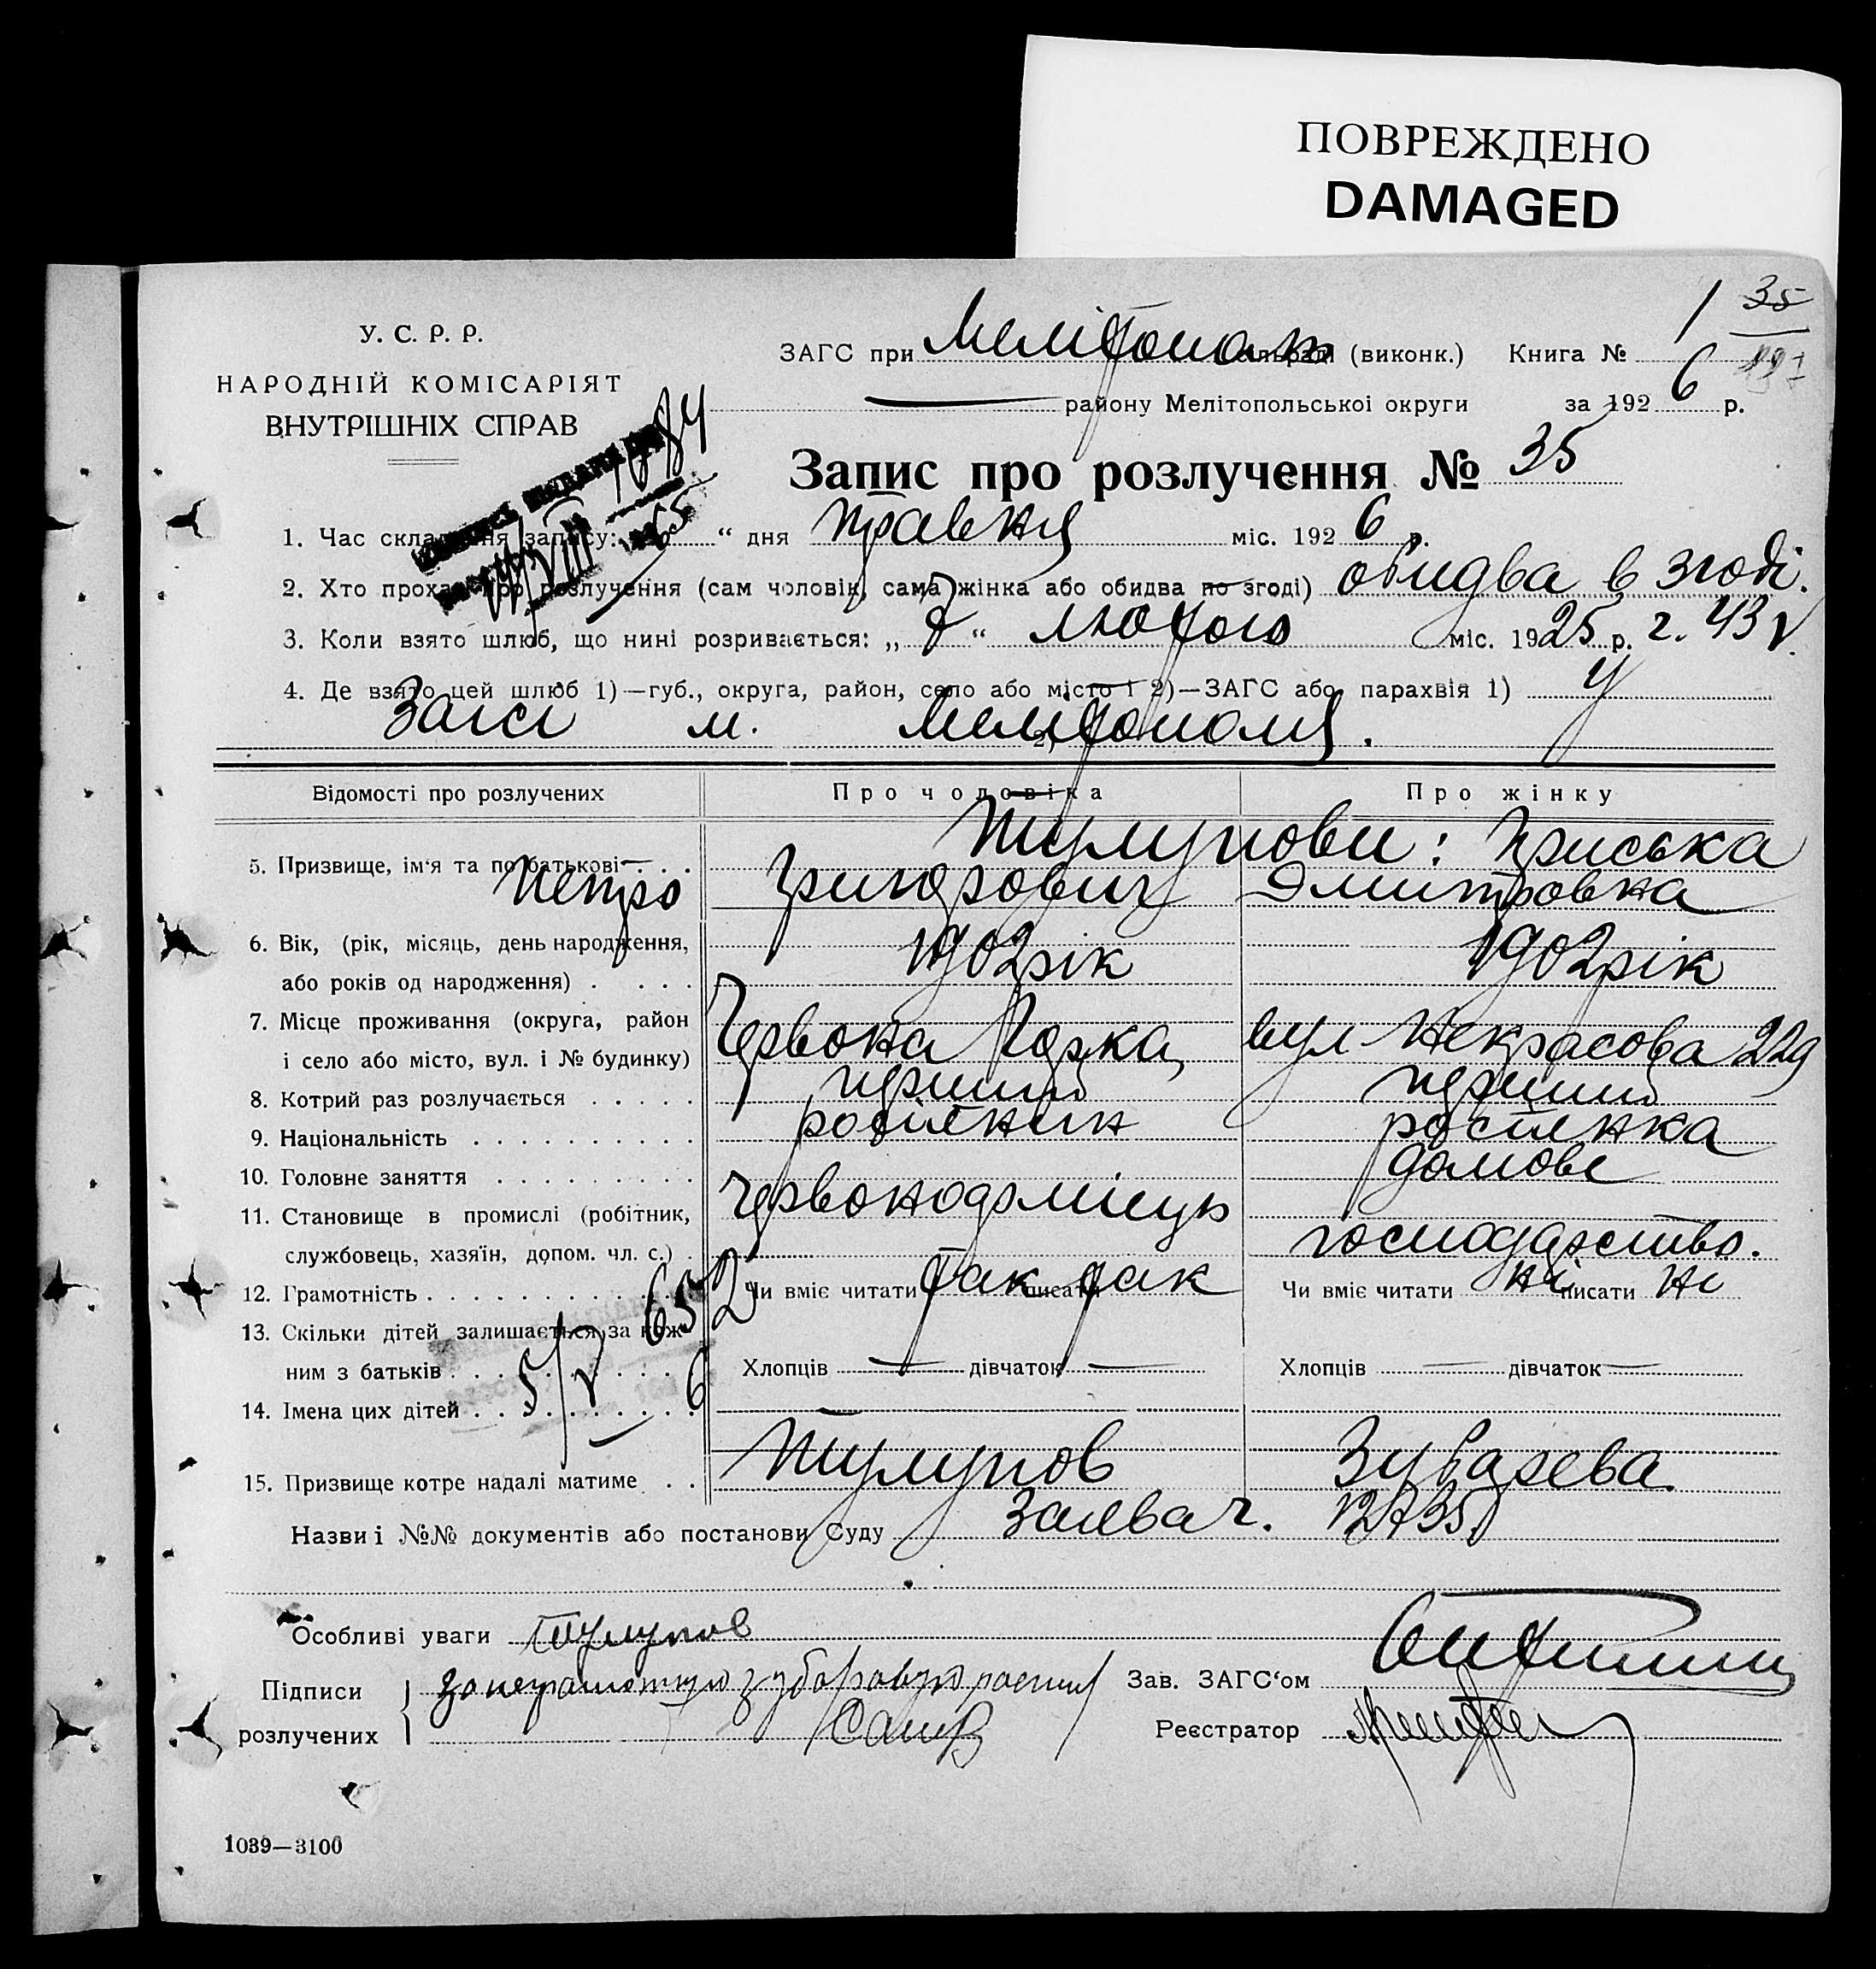 ПОВРЕЖДЕНО
DAMAGED
У. С. Р. Р.
НАРОДНІЙ КОМІСАРІЯТ
ВНУТРІШНІХ СПРАВ
1 35
ЗАГС при Мелітопол (виконк.) Книга №
району Мелітопольської округи за 1926 р.
Запис про розлучення № 35
1. Час складання запису: “ дня травня міс. 1926 р.
2. Хто прохає про розлучення (сам чоловік, сама жінка або обидва по згоді) обидва в згоді.
3. Коли взято шлюб, що нині розривається: „ 7 “ лютого міс. 1925 р. г. 43
4. Де взято цей шлюб 1)—губ., округа, район, село або місто і 2)—ЗАГС або парахвія 1) у
Загсі м. 2) Мелітополя.
Відомості про розлучених Про чоловіка Про жінку
Тулупови: Приська
5. Призвище, ім‘я та по батькові
Петро Григорович Дмитровна
6. Вік, (рік, місяць, день народження, 1902 рік 1902 рік
або років од народження)
7. Місце проживання (округа, район Червона Горка, вул Некрасова 229
і село або місто, вул. і № будинку)
8. Котрий раз розлучається перший перший
9. Національність росіянин росіянка
10. Головне заняття домове
11. Становище в промислі (робітник, червоноармієць
службовець, хазяїн, допом. чл. с.) господарство.
12. Грамотність Чи вміє читати так писати так Чи вміє читати ні писати ні
13. Скільки дітей залишається за кож- 652
ним з батьків 5/V 6 Хлопців — дівчаток — Хлопців — дівчаток —
14. Імена цих дітей
15. Призвище котре надалі матиме Тулупов Зубарева
Назви і №№ документів або постанови Суду Заява г.
Особливі уваги Тулупов
Підписи за неграмотную Зубареву Зав. ЗАГС‘ом
розлучених Реєстратор
1039—3100